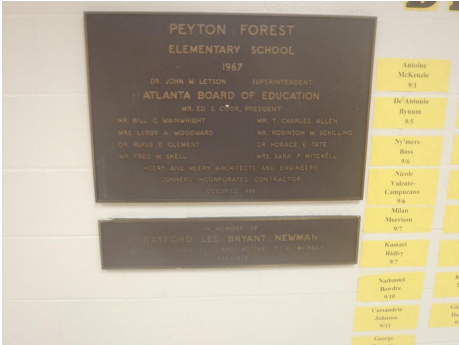 PEYTON FOREST
ELEMENTARY SCHOOL
1967
DR. JOHN W. LETSON SUPERINTENDENT
ATLANTA BOARD OF EDUCATION
MR. ED S. COOK, PRESIDENT
MR. BILL C. WAINWRIGHT MR. T. CHARLES ALLEN
MRS. LEROY A. WOODWARD MR. ROBINSON W. SCHILLING
DR. RUFUS E. CLEMENT DR. HORACE E. TATE
MR. FRED W. SHELL MRS. SARA P. MITCHELL
HEERY AND HEERY ARCHITECTS AND ENGINEERS
INCORPORATED, CONTRACTOR
OCCUPIED
IN MEMORY OF
LEE BRYANT NEWMAN
Antoine
McKenzie
9/1
De'Antonio
Bynum
9/5
Ny'mere
Bass
9/6
Nicole
Valente-
Campuzano
9/6
Milan
Morrison
9/7
Kamari
Ridley
9/7
Nathaniel
Bowdre
9/10
Cassandria
Johnson
9/13
George